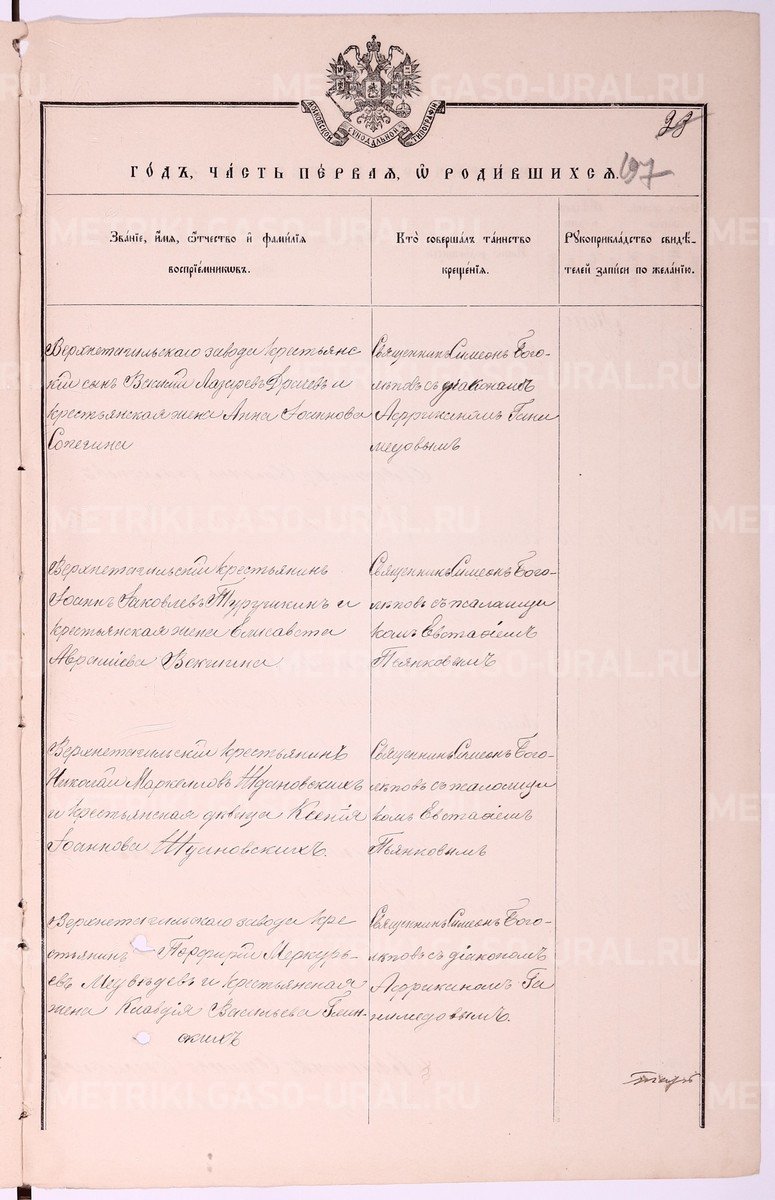 METRIKI.GASO-URAL.RU
МОСКОВСКОЙ СѴНОДАЛЬНОЙ ТИПОГРАФІИ
197
ГО́ДЪ, ЧА́СТЬ ПЕ́РВАЯ, Ѡ҆ РОДИ́ВШИХСѦ.
Зва́нїе, и҆́мѧ, ѻ҆́тчество и҆ фами́лїѧ
воспрїе́мникѡвъ.
Кто̀ соверша́лъ та́инство
креще́нїѧ.
Рꙋкоприкла́дство свидѣ́-
телей за́писи по жела́нїю.
Верхнетагильскаго завода крестьянс-
кій сынъ Василій Лазаревъ и
крестьянская жена Анна Іоаннова
Сопегина
Священникъ Симеонъ Бого-
лѣповъ съ діакономъ
Африканомъ Гани
медовымъ
Верхнетагильскій крестьянинъ
Іоаннъ Іаковлевъ и
крестьянская жена Елисавета
Авраміева
Священникъ Симеонъ Бого-
лѣповъ съ псаломщи
комъ Евстафіемъ
Пьянковымъ
Верхнетагильскій крестьянинъ
Николай Маркелловъ Ждановскихъ
и крестьянская дѣвица Ксенія
Іоаннова Ждановскихъ.
Священникъ Симеонъ Бого-
лѣповъ съ псаломщи
комъ Евстафіемъ
Пьянковымъ
Верхнетагильскаго завода кре
стьянинъ Порфирій Меркурь-
евъ Медвѣдевъ и крестьянская
жена Клавдія Васильева Глин-
скихъ
Священникъ Симеонъ Бого-
лѣповъ съ діакономъ
Африканомъ Га
нимедовымъ.